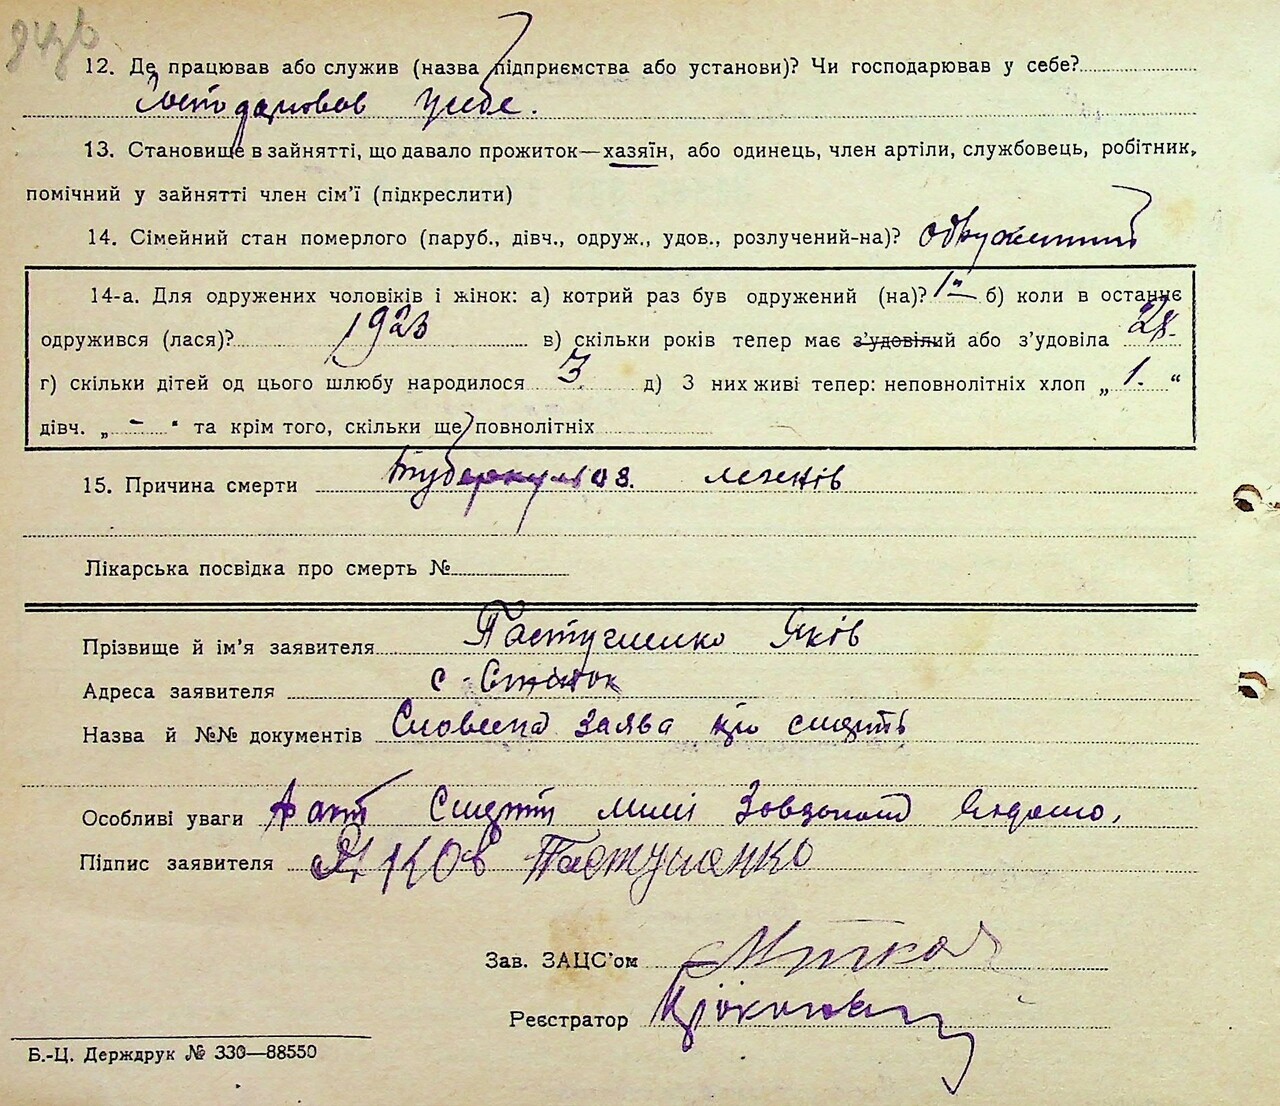 12. Де працював або служив (назва підприємства або установи)? Чи господарював у себе?
Господарював у себе.
13. Становище в зайнятті, що давало прожиток—хазяїн, або одинець, член артіли, службовець, робітник,
помічний у зайнятті член сім'ї (підкреслити)
14. Сімейний стан померлого (паруб., дівч., одруж., удов., розлучений-на)? одружений
14-а. Для одружених чоловіків і жінок: а) котрий раз був одружений (на)? 1й б) коли в останнє
одружився (лася)? 1923 в) скільки років тепер має з'удовілий або з'удовіла 28.
г) скільки дітей од цього шлюбу народилося 3. д) З них живі тепер: неповнолітніх хлоп „ 1. “
дівч. „ - “ та крім того, скільки ще повнолітніх
15. Причина смерти Туберкульоз. легенів
Лікарська посвідка про смерть №
Прізвище й ім'я заявителя Пастушенко Яків
Адреса заявителя с.
Назва й №№ документів Словесна заява про смерть
Особливі уваги Факт смерти мині
Підпис заявителя Яков Пастушенко
Зав. ЗАЦС'ом
Реєстратор
Б.-Ц. Держдрук № 330—88550